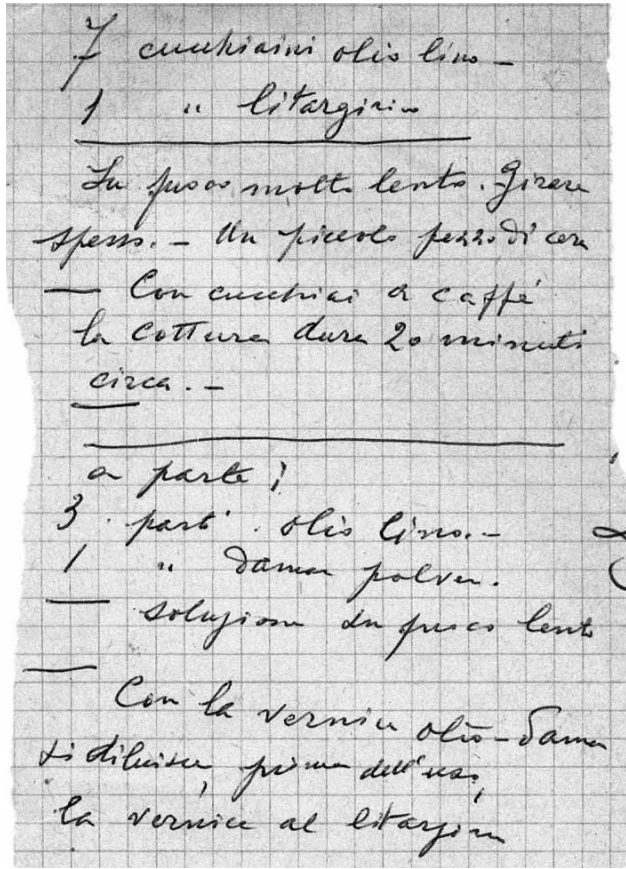 7 cucchiaini olio lino -
1 " litargirio
Su fuoco molto lento. Girare
spesso. - Un piccolo pezzo di cera
— Con cucchiai a caffé
la cottura dura 20 minuti
circa. -
a parte :
3 parti olio lino. -
1 " damar polver.
— soluzione su fuoco lento
Con la vernice olio-damar
si diluisce, prima dell'uso,
la vernice al litargirio